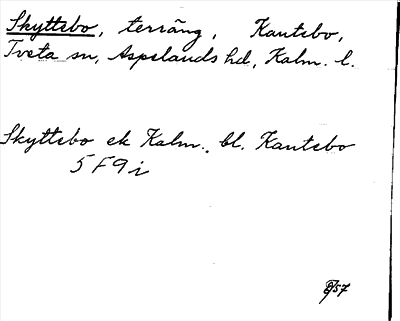 Skyttebo, terräng, Kantebo,
Tveta sn, Aspelands hd, Kalm. l.
Skyttebo ek Kalm., bl. Kantebo
5 F 9 i
57